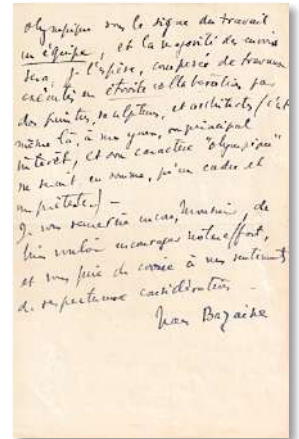 olympique sous le signe du travail
en équipe, et la majorité des envois
sera, je l'espère, composée de travaux
exécutés en étroite collaboration par
des peintres, sculpteurs, et architectes (c'est
même là, à mes yeux, son principal
intérêt, et son caractère "olympique"
ne serait, en somme, qu'un cadre et
un prétexte.) —
Je vous remercie encore, Monsieur, de
bien vouloir encourager notre effort,
et vous prie de croire à mes sentiments
de respectueuse considération
Jean Bazaine